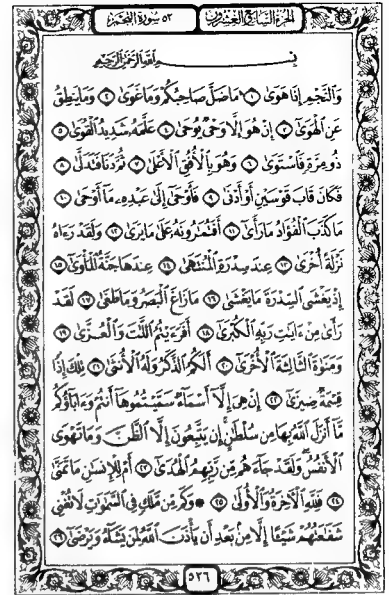 الجزء السابع والعشرون ٥٣ سورة النجم
بسم الله الرحمن الرحيم
والنجم إذا هوى ١ ما ضل صاحبكم وما غوى ٢ وما ينطق
عن الهوى ٣ إن هو إلا وحي يوحى ٤ علمه شديد القوى ٥
ذو مرة فاستوى ٦ وهو بالأفق الأعلى ٧ ثم دنا فتدلى ٨
فكان قاب قوسين أو أدنى ٩ فأوحى إلى عبده ما أوحى ١٠
ما كذب الفؤاد ما رأى ١١ أفتمرونه على ما يرى ١٢ ولقد رءاه
نزلة أخرى ١٣ عند سدرة المنتهى ١٤ عندها جنة المأوى ١٥
إذ يغشى السدرة ما يغشى ١٦ ما زاغ البصر وما طغى ١٧ لقد
رأى من ءايت ربه الكبرى ١٨ أفرءيتم اللت والعزى ١٩
ومنوة الثالثة الأخرى ٢٠ ألكم الذكر وله الأنثى ٢١ تلك إذا
قسمة ضيزى ٢٢ إن هي إلا أسماء سميتموها أنتم وءاباؤكم
ما أنزل الله بها من سلطن إن يتبعون إلا الظن وما تهوى
الأنفس ولقد جاءهم من ربهم الهدى ٢٣ أم للإنسن ما تمنى
٢٤ فلله الآخرة والأولى ٢٥ ۞ وكم من ملك في السموت لا تغني
شفعتهم شيئا إلا من بعد أن يأذن الله لمن يشاء ويرضى ٢٦
٥٢٦